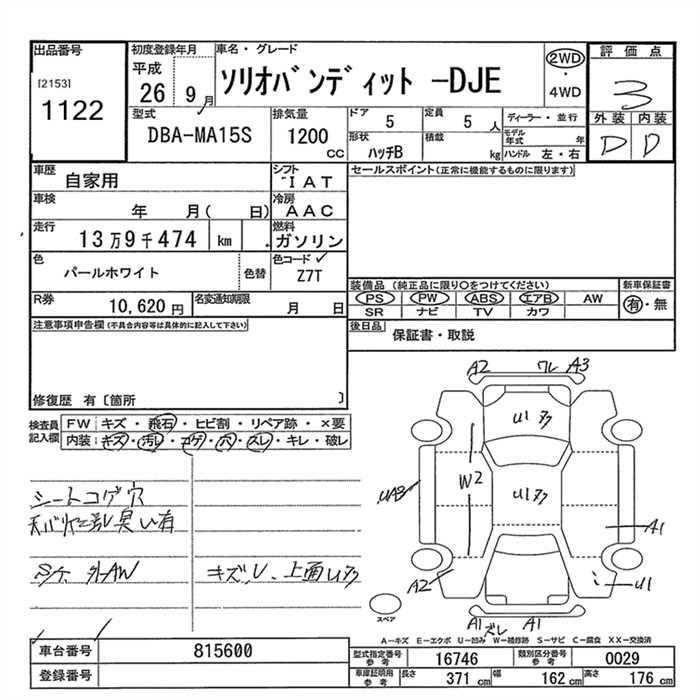 出品番号
[2153]
1122
初度登録年月
平成
26 9月
車名・グレード
ソリオバンディット -DJE
2WD
・
4WD
評価点
3
外装 内装
D D
型式
DBA-MA15S
排気量
1200
CC
ドア
5
定員
5 人
形状
ハッチB
積載
kg
ディーラー・並行
モデル年式 年
ハンドル 左・右
車歴
自家用
シフト
IAT
車検
年 月( 日)
冷房
AAC
走行
13万9千474 km
燃料
ガソリン
色
パールホワイト
色替
色コード
Z7T
R券
10,620 円
名変通知期限
月 日
セールスポイント(正常に機能するものに限ります)
装備品 (純正品に限り○をつけてください)
PS PW ABS エアB AW
SR ナビ TV カワ
新車保証書
有・無
後日品
保証書・取説
注意事項申告欄(不具合内容等は具体的に記入して下さい)
修復歴 有〔箇所 〕
検査員記入欄
FW キズ・飛石・ヒビ割・リペア跡・×要
内装: キズ・汚レ・コゲ・穴・スレ・キレ・破レ
シートコゲ穴
臭い有
外AW
キズ、U、上面Uタタ
A2 ワレ A3
Uタタ
W2
Uタタ
UA3
A1
A2
U1
A1 ズレ A1
スペア
A―キズ E―エクボ U―凹み W―補修跡 S―サビ C―腐食 XX―交換済
車台番号
815600
登録番号
型式指定番号
参考
16746
類別区分番号
参考
0029
車庫証明用
参考
長さ
371 cm
幅
162 cm
高さ
176 cm